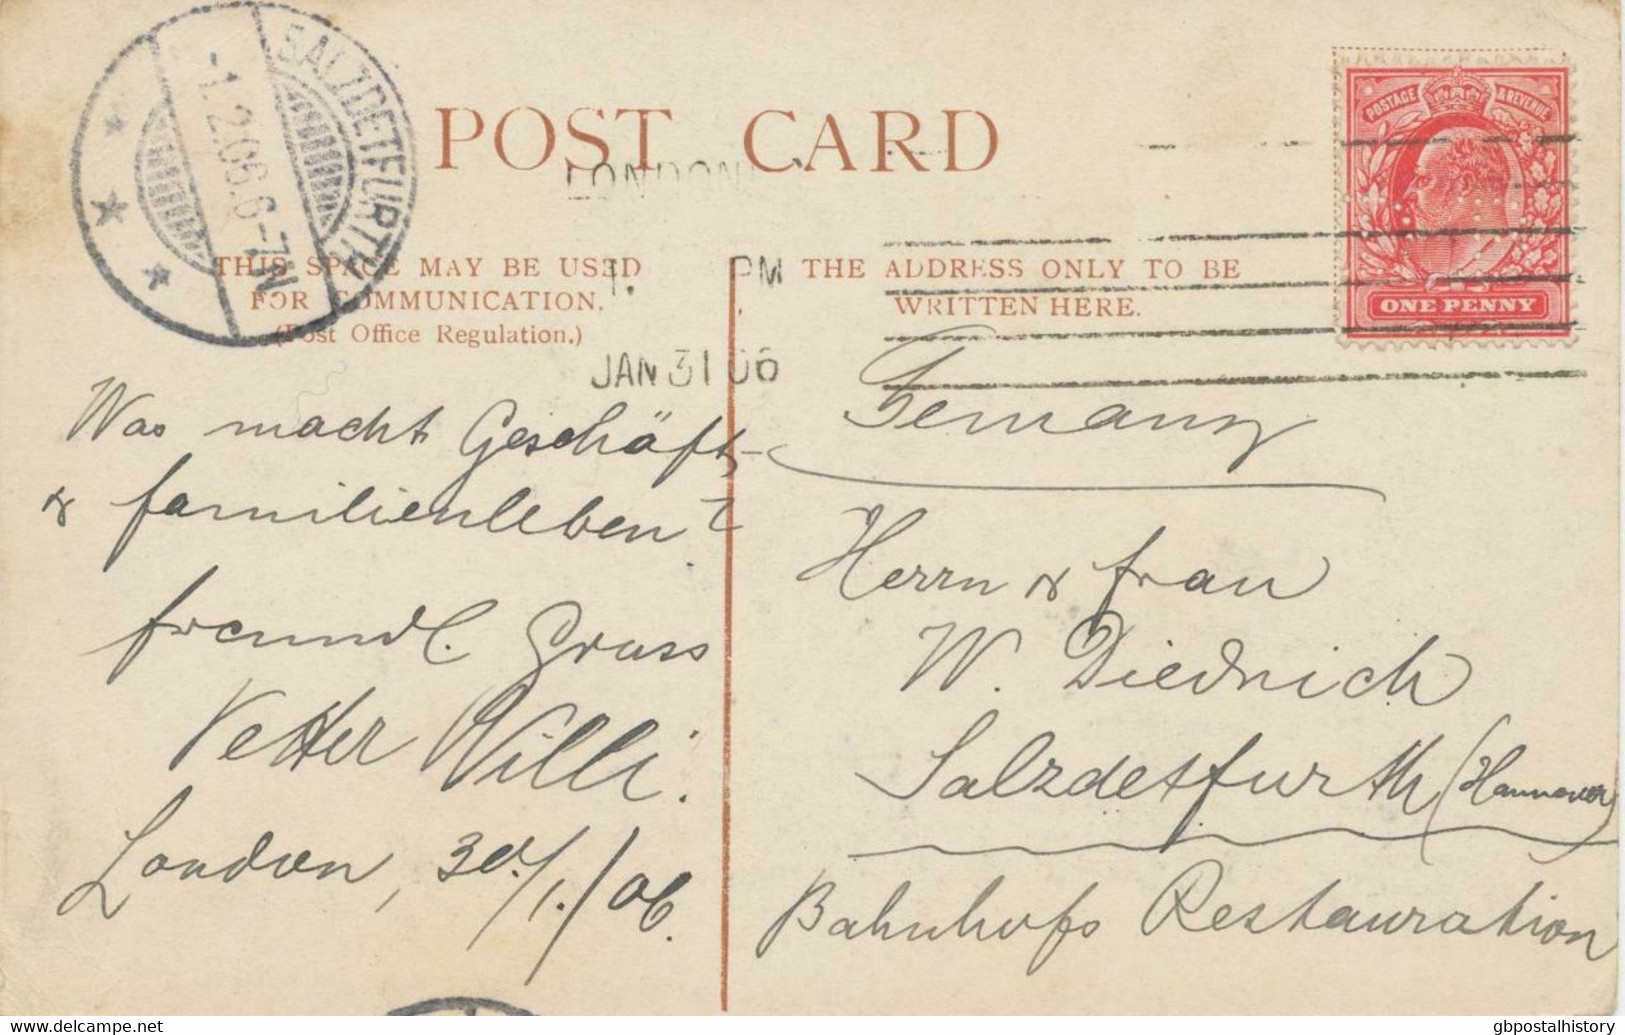 SALZDETFURTH
-1.2.06.6-7N
POST CARD
LONDON
1. PM
JAN 31 06
POSTAGE & REVENUE
ONE PENNY
THIS SPACE MAY BE USED
FOR COMMUNICATION.
(Post Office Regulation.)
THE ADDRESS ONLY TO BE
WRITTEN HERE.
Was macht Geschäfts-
& familienleben?
freundl. Gruss
Vetter Willi.
London, 30./1./06.
Germany
Herrn & frau
W. Diednich
Salzdetfurth (Hannover)
Bahnhofs Restauration
© Delcampe.net
gbpostalhistory